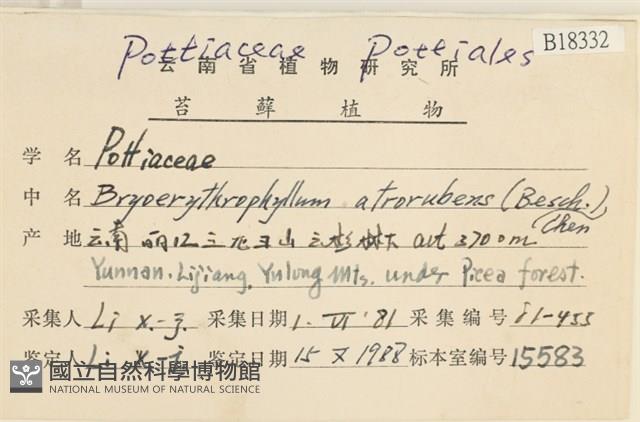 Pottiaceae Pottiales
B18332
云南省植物研究所
苔藓植物
学名 Pottiaceae
中名 Bryoerythrophyllum atrorubens (Besch.) Chen
产地 云南 丽江 玉龙山 云杉树下 alt 3700m
Yunnan. Lijiang, Yulong Mts. under Picea forest.
采集人 Li X.-j. 采集日期 1. VI '81 采集编号 81-455
鉴定人 Li X.-j. 鉴定日期 15 X 1988 标本室编号 15583
國立自然科學博物館
NATIONAL MUSEUM OF NATURAL SCIENCE